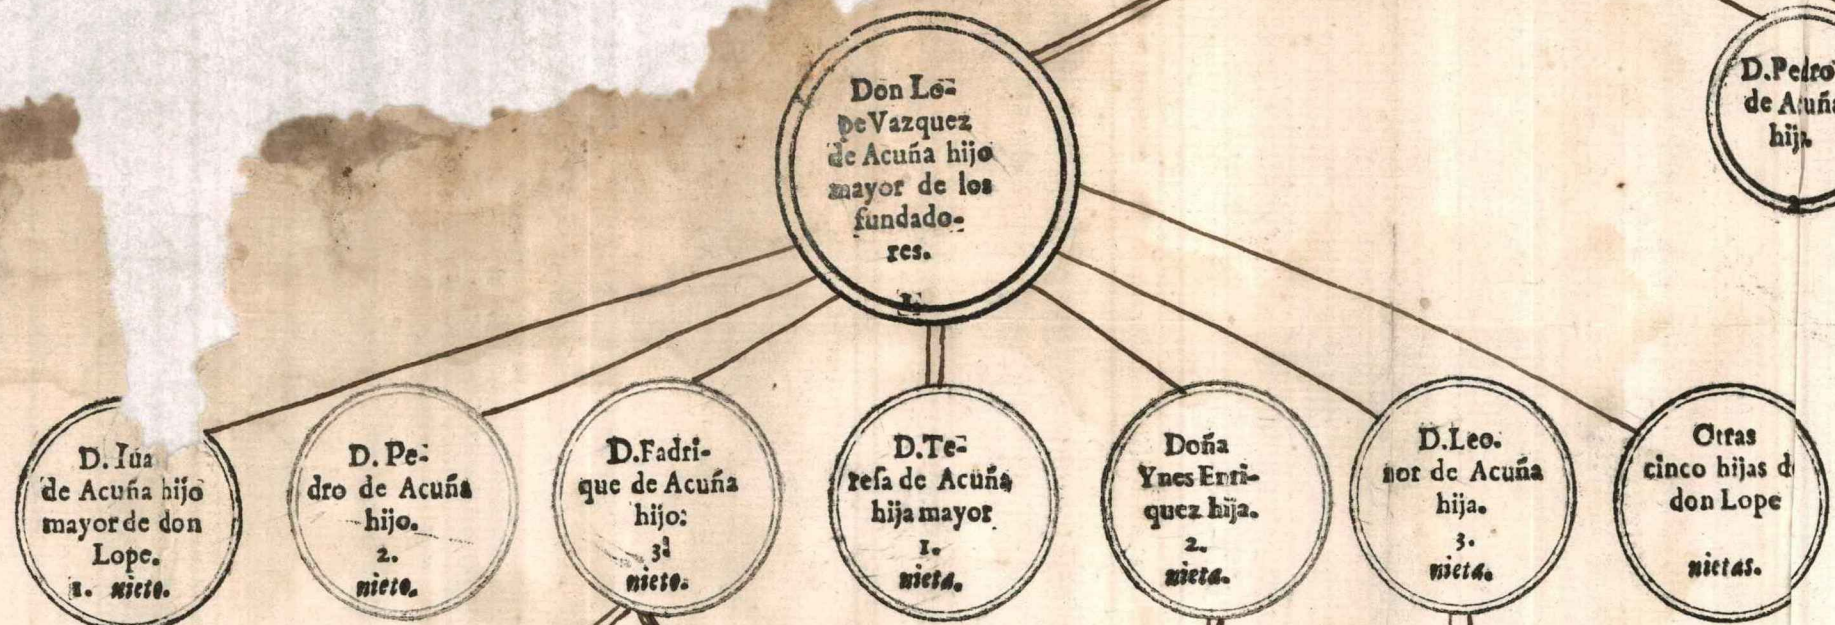 Don Lo-
pe Vazquez
de Acuña hijo
mayor de los
fundado-
res.
1.
D. Pedro
de Acuña
hijo.
D. Iuā
de Acuña hijo
mayor de don
Lope.
1. nieto.
D. Pe-
dro de Acuña
hijo.
2.
nieto.
D. Fadri-
que de Acuña
hijo:
3
nieto.
D. Te-
resa de Acuña
hija mayor
1.
nieta.
Doña
Ynes Enri-
quez hija.
2.
nieta.
D. Leo.
nor de Acuña
hija.
3.
nieta.
Otras
cinco hijas d
don Lope
nietas.